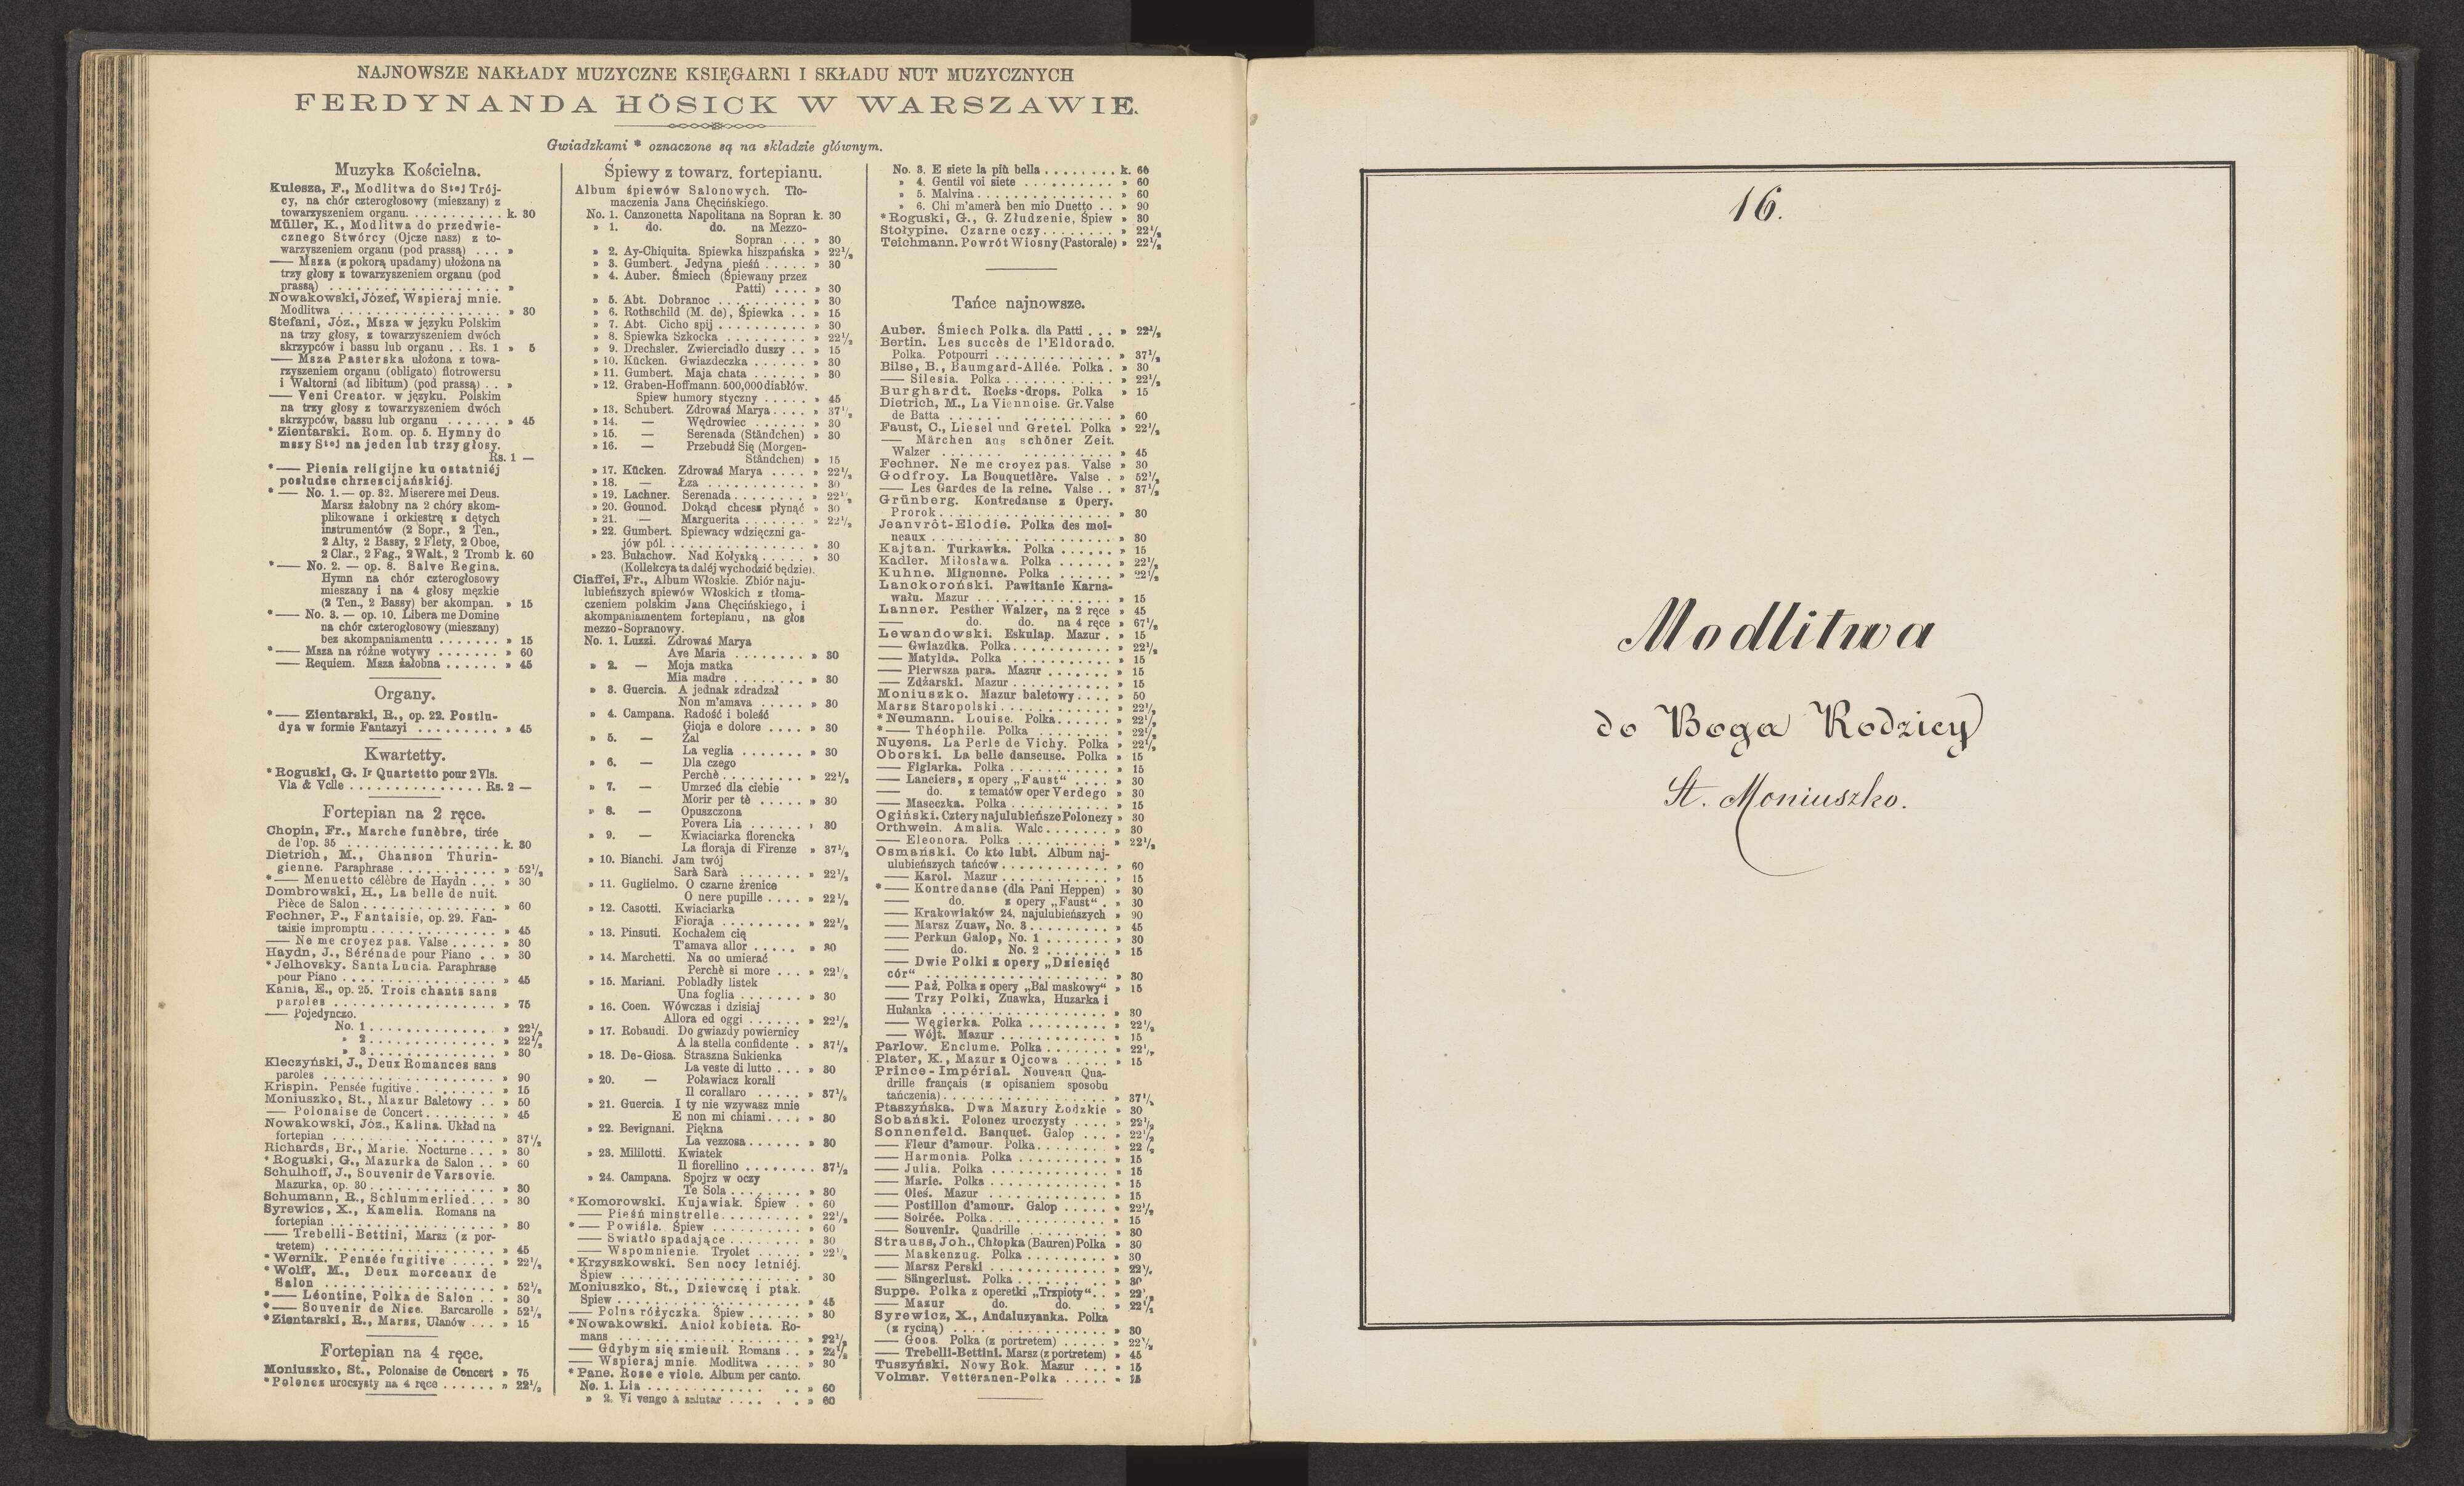 NAJNOWSZE NAKŁADY MUZYCZNE KSIĘGARNI I SKŁADU NUT MUZYCZNYCH
FERDYNANDA HÖSICK W WARSZAWIE.
Gwiadzkami * oznaczone są na składzie głównym.
Muzyka Kościelna.
Kulesza, F., Modlitwa do Stej Trój-
cy, na chór czterogłosowy (mieszany) z
towarzyszeniem organu. . . . . . . . . . . k. 30
Müller, K., Modlitwa do przedwie-
cznego Stwórcy (Ojcze nasz) z to-
warzyszeniem organu (pod prassą) . . . »
— Msza (z pokorą upadamy) ułożona na
trzy głosy z towarzyszeniem organu (pod
prassą) . . . . . . . . . . . . . . . . . . . »
Nowakowski, Józef, Wspieraj mnie.
Modlitwa . . . . . . . . . . . . . . . . . . » 30
Stefani, Józ., Msza w języku Polskim
na trzy głosy, z towarzyszeniem dwóch
skrzypców i bassu lub organu . . Rs. 1 » 5
— Msza Pasterska ułożona z towa-
rzyszeniem organu (obligato) flotrowersu
i Waltorni (ad libitum) (pod prassą) . . »
— Veni Creator. w języku. Polskim
na trzy głosy z towarzyszeniem dwóch
skrzypców, bassu lub organu . . . . . . » 45
* Zientarski. Rom. op. 5. Hymny do
mszy Stej na jeden lub trzy głosy.
Rs. 1 —
* — Pienia religijne ku ostatniéj
posłudze chrzescijańskiéj.
* — No. 1. — op. 32. Miserere mei Deus.
Marsz żałobny na 2 chóry skom-
plikowane i orkiestrę z dętych
instrumentów (2 Sopr., 2 Ten.,
2 Alty, 2 Bassy, 2 Flety, 2 Oboe,
2 Clar., 2 Fag., 2 Walt., 2 Tromb k. 60
* — No. 2. — op. 8. Salve Regina.
Hymn na chór czterogłosowy
mieszany i na 4 głosy męzkie
(2 Ten., 2 Bassy) ber akompan. » 15
* — No. 3. — op. 10. Libera me Domine
na chór czterogłosowy (mieszany)
bez akompaniamentu . . . . . . . » 15
* — Msza na różne wotywy . . . . . . . » 60
— Requiem. Msza żałobna . . . . . . » 45
Organy.
* — Zientarski, R., op. 22. Postlu-
dya w formie Fantazyi . . . . . . . . . » 45
Kwartetty.
* Roguski, G. Ir Quartetto pour 2 Vls.
Vla & Vclle . . . . . . . . . . . . . . . Rs. 2 —
Fortepian na 2 ręce.
Chopin, Fr., Marche funèbre, tirée
de l'op. 35 . . . . . . . . . . . . . . . . . k. 30
Dietrich, M., Chanson Thurin-
gienne. Paraphrase . . . . . . . . . . . » 52½
* — Menuetto célèbre de Haydn . . . » 30
Dombrowski, H., La belle de nuit.
Pièce de Salon . . . . . . . . . . . . . . . » 60
Fechner, P., Fantaisie, op. 29. Fan-
taisie impromptu . . . . . . . . . . . . . . » 45
— Ne me croyez pas. Valse . . . . . » 30
Haydn, J., Sérénade pour Piano . . » 30
* Jelhovsky. Santa Lucia. Paraphrase
pour Piano . . . . . . . . . . . . . . . . . » 45
Kania, E., op. 25. Trois chants sans
paroles . . . . . . . . . . . . . . . . . . » 75
— Pojedynczo.
No. 1 . . . . . . . . . . . . . . » 22½
» 2 . . . . . . . . . . . . . . » 22½
» 3 . . . . . . . . . . . . . . » 30
Kleczyński, J., Deux Romances sans
paroles . . . . . . . . . . . . . . . . . . » 90
Krispin. Pensée fugitive . . . . . . . . . » 15
Moniuszko, St., Mazur Baletowy . . » 50
— Polonaise de Concert . . . . . . . . » 45
Nowakowski, Józ., Kalina. Układ na
fortepian . . . . . . . . . . . . . . . . . . » 37½
Richards, Br., Marie. Nocturne . . . » 30
* Roguski, G., Mazurka de Salon . . » 60
Schulhoff, J., Souvenir de Varsovie.
Mazurka, op. 30 . . . . . . . . . . . . . . » 30
Schumann, R., Schlummerlied . . . » 30
Syrewicz, X., Kamelia. Romans na
fortepian . . . . . . . . . . . . . . . . . . » 30
— Trebelli-Bettini, Marsz (z por-
tretem) . . . . . . . . . . . . . . . . . . » 45
* Wernik. Pensée fugitive . . . . . » 22½
* Wolff, M., Deux morceaux de
Salon . . . . . . . . . . . . . . . . . . . » 52½
* — Léontine, Polka de Salon . . » 30
* — Souvenir de Nice. Barcarolle » 52½
* Zientarski, R., Marsz, Ułanów . . . » 15
Fortepian na 4 ręce.
Moniuszko, St., Polonaise de Concert » 75
* Polonez uroczysty na 4 ręce . . . . . . » 22½
Śpiewy z towarz. fortepianu.
Album śpiewów Salonowych. Tło-
maczenia Jana Chęcińskiego.
No. 1. Canzonetta Napolitana na Sopran k. 30
» 1. do. do. na Mezzo-
Sopran . . . » 30
» 2. Ay-Chiquita. Spiewka hiszpańska » 22½
» 3. Gumbert. Jedyna pieśń . . . . . » 30
» 4. Auber. Śmiech (Śpiewany przez
Patti) . . . . » 30
» 5. Abt. Dobranoc . . . . . . . . . . » 30
» 6. Rothschild (M. de), Śpiewka . . » 15
» 7. Abt. Cicho spij . . . . . . . . . . » 30
» 8. Spiewka Szkocka . . . . . . . . . » 22½
» 9. Drechsler. Zwierciadło duszy . . » 15
» 10. Kücken. Gwiazdeczka . . . . . . » 30
» 11. Gumbert. Maja chata . . . . . . » 30
» 12. Graben-Hoffmann. 500,000 diabłów.
Spiew humory styczny . . . . . » 45
» 13. Schubert. Zdrowaś Marya . . . . » 37½
» 14. — Wędrowiec . . . . . . » 30
» 15. — Serenada (Ständchen) » 30
» 16. — Przebudź Się (Morgen-
Ständchen) » 15
» 17. Kücken. Zdrowaś Marya . . . . » 22½
» 18. — Łza . . . . . . . . . . . » 30
» 19. Lachner. Serenada . . . . . . . . » 22½
» 20. Gounod. Dokąd chcesz płynąć » 30
» 21. — Marguerita . . . . . . . » 22½
» 22. Gumbert. Spiewacy wdzięczni ga-
jów pól . . . . . . . . . . . . . . . » 30
» 23. Bułachow. Nad Kołyską . . . . . » 30
(Kollekcya ta daléj wychodzić będzie).
Ciaffei, Fr., Album Włoskie. Zbiór naju-
lubieńszych spiewów Włoskich z tłoma-
czeniem polskim Jana Chęcińskiego, i
akompaniamentem fortepianu, na głos
mezzo-Sopranowy.
No. 1. Luzzi. Zdrowaś Marya
Ave Maria . . . . . . . . » 30
» 2. — Moja matka
Mia madre . . . . . . . . » 30
» 3. Guercia. A jednak zdradzał
Non m'amava . . . . . » 30
» 4. Campana. Radość i boleść
Gioja e dolore . . . . » 30
» 5. — Żal
La veglia . . . . . . . » 30
» 6. — Dla czego
Perchè . . . . . . . . . » 22½
» 7. — Umrzeć dla ciebie
Morir per tè . . . . . » 30
» 8. — Opuszczona
Povera Lia . . . . . . » 30
» 9. — Kwiaciarka florencka
La floraja di Firenze » 37½
» 10. Bianchi. Jam twój
Sarà Sarà . . . . . . . » 22½
» 11. Guglielmo. O czarne źrenice
O nere pupille . . . . » 22½
» 12. Casotti. Kwiaciarka
Fioraja . . . . . . . . . » 22½
» 13. Pinsuti. Kochałem cię
T'amava allor . . . . . » 30
» 14. Marchetti. Na co umierać
Perchè si more . . . » 22½
» 15. Mariani. Pobladły listek
Una foglia . . . . . . . » 30
» 16. Coen. Wówczas i dzisiaj
Allora ed oggi . . . . . . » 22½
» 17. Robaudi. Do gwiazdy powiernicy
A la stella confidente . » 37½
» 18. De-Giosa. Straszna Sukienka
La veste di lutto . . . » 30
» 20. — Poławiacz korali
Il corallaro . . . . . . » 37½
» 21. Guercia. I ty nie wzywasz mnie
E non mi chiami . . . . » 30
» 22. Bevignani. Piękna
La vezzosa . . . . . . » 30
» 23. Mililotti. Kwiatek
Il fiorellino . . . . . . . . 37½
» 24. Campana. Spojrz w oczy
Te Sola . . . . . . . . » 30
* Komorowski. Kujawiak. Śpiew . » 60
— Pieśń minstrelle . . . . . . . . . » 22½
* — Powiśle. Śpiew . . . . . . . . . . » 60
— Swiatło spadające . . . . . . . . » 30
— Wspomnienie. Tryolet . . . . . » 22½
* Krzyszkowski. Sen nocy letniéj.
Śpiew . . . . . . . . . . . . . . . . . . . » 30
Moniuszko, St., Dziewczę i ptak.
Spiew . . . . . . . . . . . . . . . . . . . » 45
— Polna różyczka. Śpiew . . . . . . » 30
* Nowakowski. Anioł kobieta. Ro-
mans . . . . . . . . . . . . . . . . . . . » 22½
— Gdybym się zmienił. Romans . . » 22½
— Wspieraj mnie. Modlitwa . . . . » 30
* Pane. Rose e viole. Album per canto.
No. 1. Lia . . . . . . . . . . . . . . . » 60
» 2. Vi vengo à salutar . . . . . . » 60
No. 3. E siete la più bella . . . . . . . . k. 60
» 4. Gentil voi siete . . . . . . . . . . » 60
» 5. Malvina . . . . . . . . . . . . . . . » 60
» 6. Chi m'amerà ben mio Duetto . . » 90
* Roguski, G., G. Złudzenie, Śpiew » 30
Stołypine. Czarne oczy . . . . . . . . » 22½
Teichmann. Powrót Wiosny (Pastorale) » 22½
Tańce najnowsze.
Auber. Śmiech Polka. dla Patti . . . » 22½
Bertin. Les succès de l'Eldorado.
Polka. Potpourri . . . . . . . . . . . . . » 37½
Bilse, B., Baumgard-Allée. Polka . » 30
— Silesia. Polka . . . . . . . . . . . . » 22½
Burghardt. Rocks-drops. Polka » 15
Dietrich, M., La Viennoise. Gr. Valse
de Batta . . . . . . . . . . . . . . . . . » 60
Faust, C., Liesel und Gretel. Polka » 22½
— Märchen aus schöner Zeit.
Walzer . . . . . . . . . . . . . . . . . . » 45
Fechner. Ne me croyez pas. Valse » 30
Godfroy. La Bouquetière. Valse . » 52½
— Les Gardes de la reine. Valse . . » 37½
Grünberg. Kontredanse z Opery.
Prorok . . . . . . . . . . . . . . . . . . . » 30
Jeanvrôt-Elodie. Polka des moi-
neaux . . . . . . . . . . . . . . . . . . . . » 30
Kajtan. Turkawka. Polka . . . . . . » 15
Kadler. Miłosława. Polka . . . . . . » 22½
Kuhne. Mignonne. Polka . . . . . . » 22½
Lanckoroński. Pawitanie Karna-
wału. Mazur . . . . . . . . . . . . . . . » 15
Lanner. Pesther Walzer, na 2 ręce » 45
— do. do. na 4 ręce » 67½
Lewandowski. Eskulap. Mazur . » 15
— Gwiazdka. Polka . . . . . . . . . . . » 22½
— Matylda. Polka . . . . . . . . . . . » 15
— Pierwsza para. Mazur . . . . . . . » 15
— Zdżarski. Mazur . . . . . . . . . . . » 15
Moniuszko. Mazur baletowy . . . . » 50
Marsz Staropolski . . . . . . . . . . . . » 22½
* Neumann. Louise. Polka . . . . . . » 22½
* — Théophile. Polka . . . . . . . . . » 22½
Nuyens. La Perle de Vichy. Polka » 22½
Oborski. La belle danseuse. Polka » 15
— Figlarka. Polka . . . . . . . . . . . » 15
— Lanciers, z opery „Faust“ . . . . » 30
— do. z tematów oper Verdego » 30
— Maseczka. Polka . . . . . . . . . . . » 15
Ogiński. Cztery najulubieńsze Polonezy » 30
Orthwein. Amalia. Walc . . . . . . . . » 30
— Eleonora. Polka . . . . . . . . . . . » 22½
Osmański. Co kto lubi. Album naj-
ulubieńszych tańców . . . . . . . . . . . » 60
— Karol. Mazur . . . . . . . . . . . . . » 15
* — Kontredanse (dla Pani Heppen) » 30
— do. z opery „Faust“ . » 30
— Krakowiaków 24, najulubieńszych » 90
— Marsz Zuaw, No. 3 . . . . . . . . . » 45
— Perkun Galop, No. 1 . . . . . . . . » 30
— do. No. 2 . . . . . . . » 15
— Dwie Polki z opery „Dziesięć
cór“ . . . . . . . . . . . . . . . . . . . . » 30
— Paź. Polka z opery „Bal maskowy“ » 15
— Trzy Polki, Zuawka, Huzarka i
Hułanka . . . . . . . . . . . . . . . . . . » 30
— Węgierka. Polka . . . . . . . . . » 22½
— Wójt. Mazur . . . . . . . . . . . . » 15
Parlow. Enclume. Polka . . . . . . . » 22½
Plater, K., Mazur z Ojcowa . . . . . » 15
Prince-Impérial. Nouveau Qua-
drille français (z opisaniem sposobu
tańczenia) . . . . . . . . . . . . . . . . . » 37½
Ptaszyńska. Dwa Mazury Łodzkie » 30
Sobański. Polonez uroczysty . . . . » 22½
Sonnenfeld. Banquet. Galop . . . » 22½
— Fleur d'amour. Polka . . . . . . . . » 22½
— Harmonia. Polka . . . . . . . . . . » 15
— Julia. Polka . . . . . . . . . . . . . » 15
— Marie. Polka . . . . . . . . . . . . . » 15
— Oleś. Mazur . . . . . . . . . . . . . » 15
— Postillon d'amour. Galop . . . . . » 22½
— Soirée. Polka . . . . . . . . . . . . . » 15
— Souvenir. Quadrille . . . . . . . . . » 30
Strauss, Joh., Chłopka (Bauren) Polka » 30
— Maskenzug. Polka . . . . . . . . . . » 30
— Marsz Perski . . . . . . . . . . . . . » 22½
— Sängerlust. Polka . . . . . . . . . . » 30
Suppe. Polka z operetki „Trzpioty“ . . » 22½
— Mazur do. do. . . » 22½
Syrewicz, X., Andaluzyanka. Polka
(z ryciną) . . . . . . . . . . . . . . . . . » 30
— Goos. Polka (z portretem) . . . . . . » 22½
— Trebelli-Bettini. Marsz (z portretem) » 45
Tuszyński. Nowy Rok. Mazur . . . » 15
Volmar. Vetteranen-Polka . . . . . » 15
16.
Modlitwa
do Boga Rodzicy
St. Moniuszko.